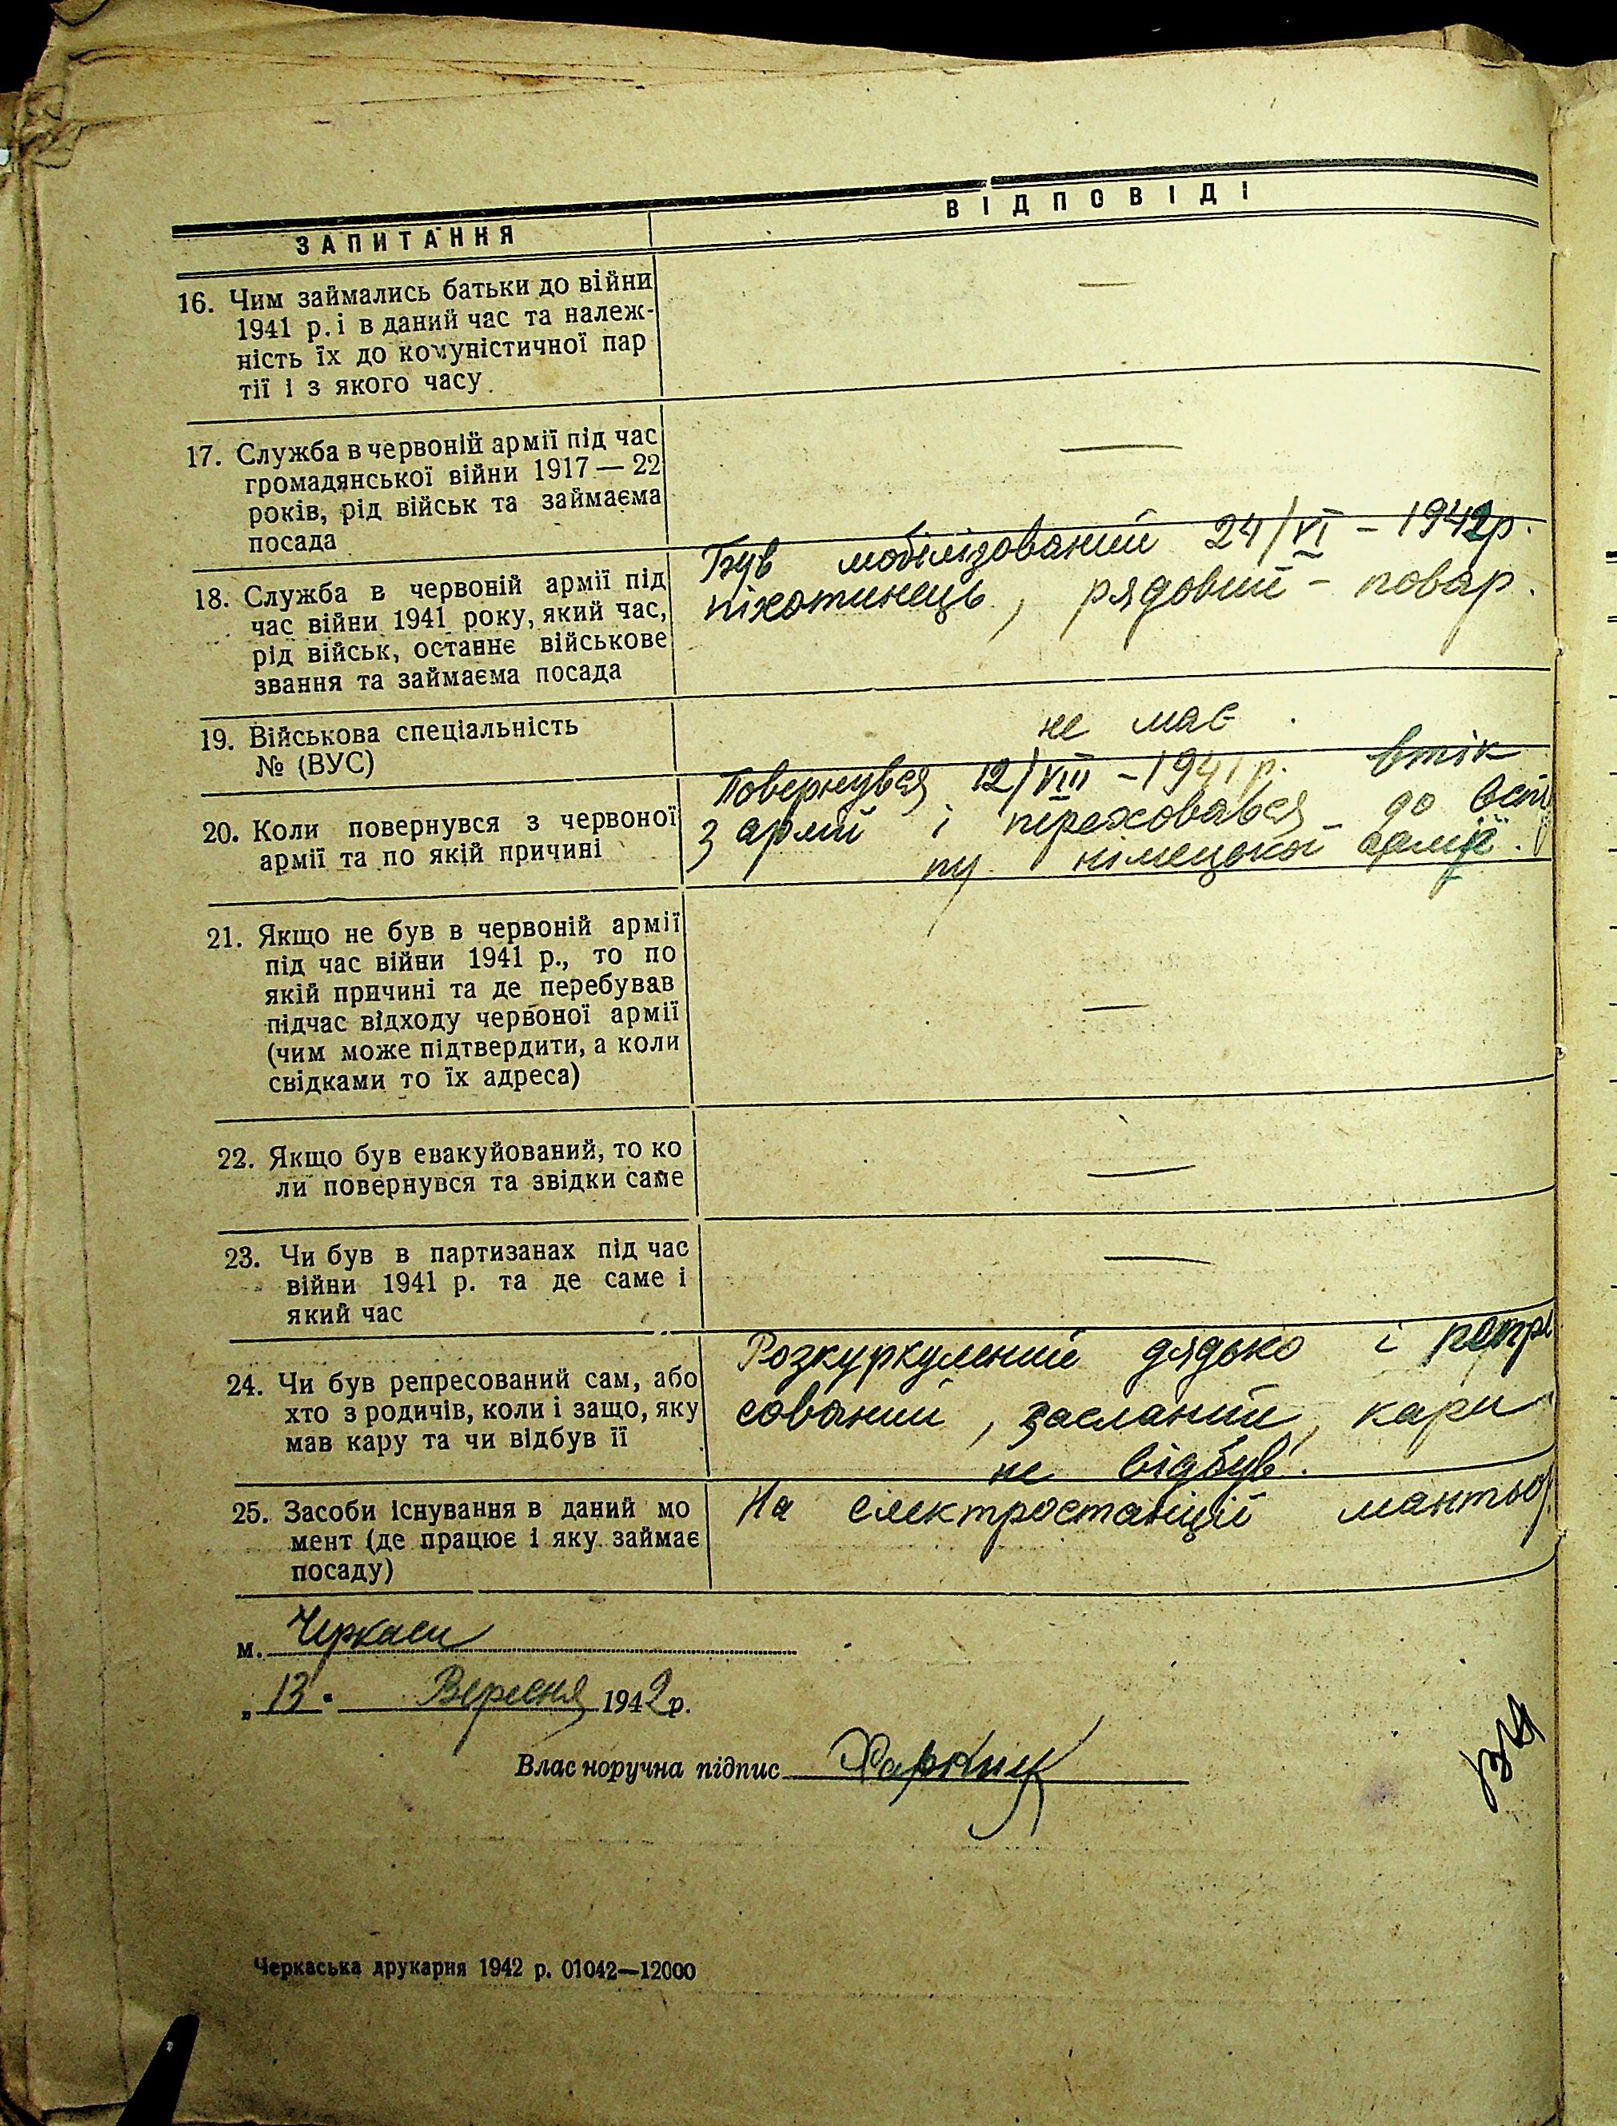 ЗАПИТАННЯ
ВІДПОВІДІ
16. Чим займались батьки до війни
1941 р. і в даний час та належ-
ність їх до комуністичної пар
тії і з якого часу.
—
17. Служба в червоній армії під час
громадянської війни 1917 — 22
років, рід військ та займаєма
посада
—
18. Служба в червоній армії під
час війни 1941 року, який час,
рід військ, останнє військове
звання та займаєма посада
Був мобілізований 24/VI – 1942р.
піхотинець, рядовий – повар.
19. Військова спеціальність
№ (ВУС)
не має
20. Коли повернувся з червоної
армії та по якій причині
Повернувся 12/VIII – 1941 р. втік
з армії і переховався до всту
пу німецької армії.
21. Якщо не був в червоній армії
під час війни 1941 р., то по
якій причині та де перебував
підчас відходу червоної армії
(чим може підтвердити, а коли
свідками то їх адреса)
—
22. Якщо був евакуйований, то ко
ли повернувся та звідки саме
—
23. Чи був в партизанах під час
війни 1941 р. та де саме і
який час
—
24. Чи був репресований сам, або
хто з родичів, коли і защо, яку
мав кару та чи відбув її
Розкуркулений дядько і репре
сований, засланий, кари
не відбув.
25. Засоби існування в даний мо
мент (де працює і яку займає
посаду)
На електростанції мантьор
м. Черкаси
„ 13 " Вересня 1942 р.
Власноручна підпис
Черкаська друкарня 1942 р. 01042—12000